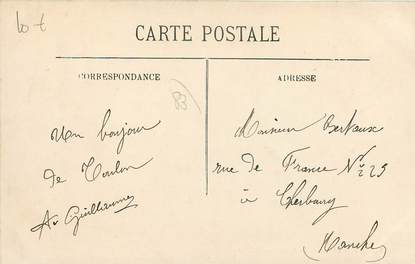 lot
CARTE POSTALE
CORRESPONDANCE
ADRESSE
83
Un bonjour
de Toulon
Guilhaume
Monsieur Bertaux
rue de France No 25
à Cherbourg
(Manche)